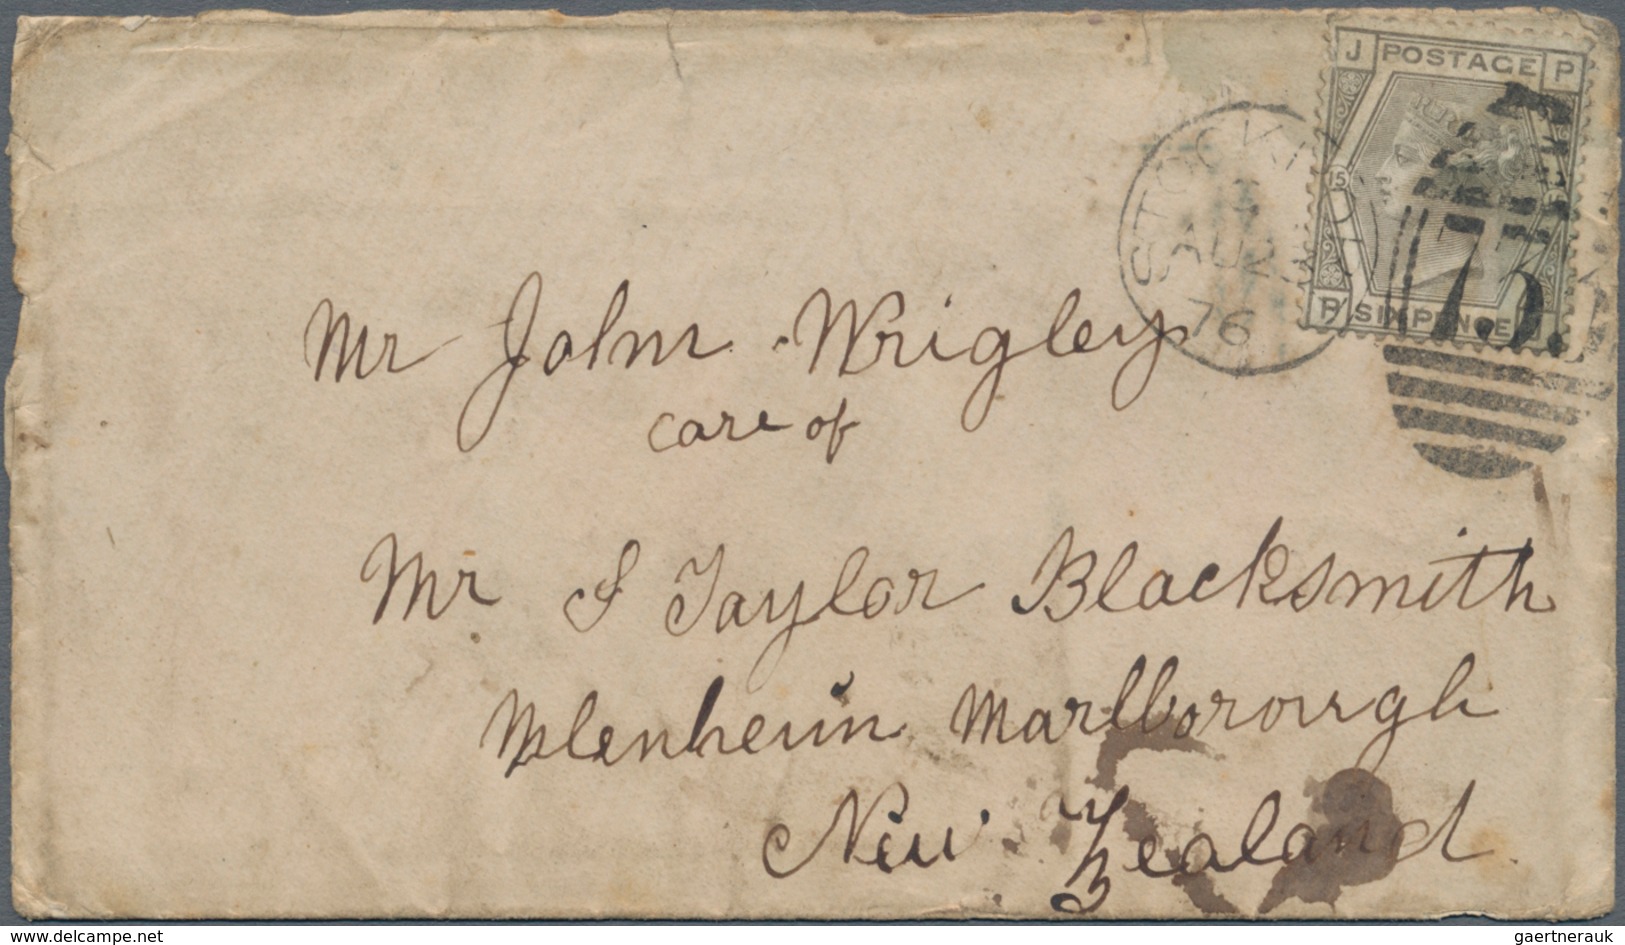 J POSTAGE P
15
P SIXPENCE
AU
76
Mr John Wrigley
care of
Mr S Taylor Blacksmith
Blenheim Marlborough
New Zealand
delcampe.net
gaertnerauk